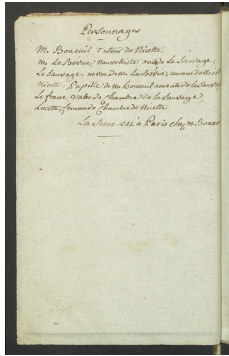 Personnages
M. Boneuil Tuteur de Nicette
M. La Berrue, nouvelliste oncle de Le Sauvage,
Le Sauvage neveu de M. La Berrue, amant de Nicette
Nicette, Pupille de M. Boneuil amante de Le Sauvage
Le franc valet de chambre de Le Sauvage
Lucette, femme de Chambre de Nicette
La Scene est à Paris chez M. Boneuil